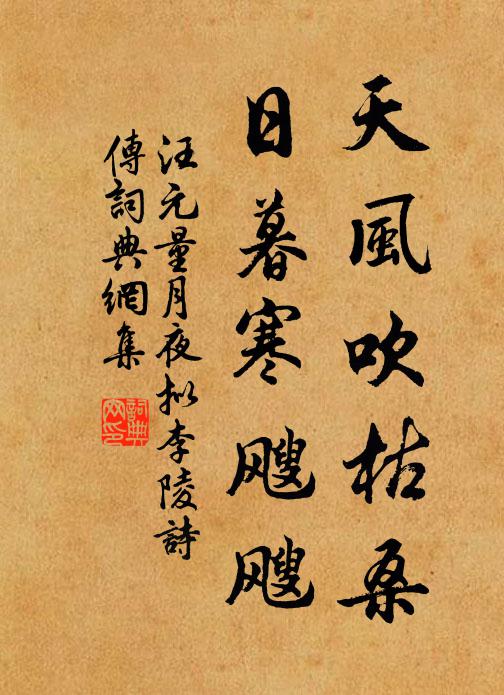 天風吹枯桑
日暮寒飕飕
汪元量月夜拟李陵詩
傳詞典網集
詞典
网印